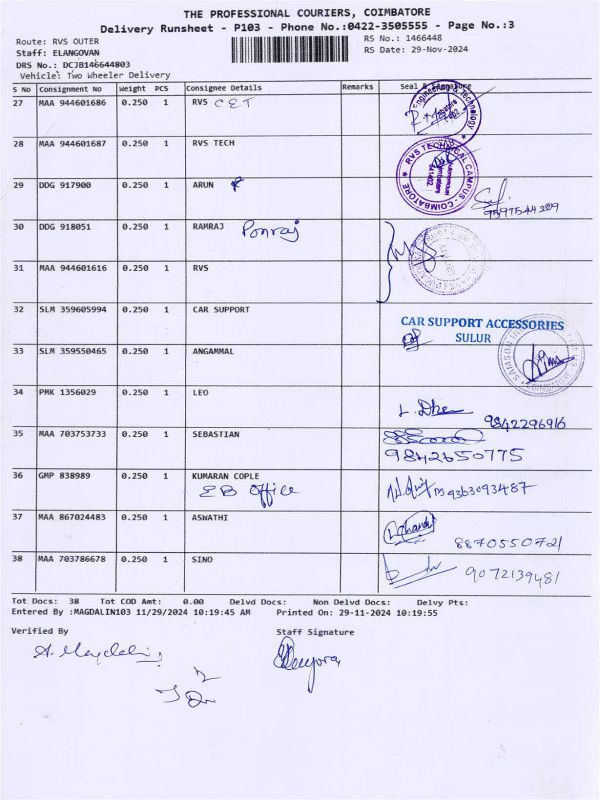 THE PROFESSIONAL COURIERS, COIMBATORE
Delivery Runsheet - P103 - Phone No.:0422-3505555 - Page No.:3
Route: RVS OUTER
RS No.: 1466448
Staff: ELANGOVAN
RS Date: 29-Nov-2024
DRS No.: DCJB146644803
Vehicle: Two Wheeler Delivery
S No Consignment No Weight PCS Consignee Details Remarks Seal & Signature
27 MAA 944601686 0.250 1 RVS CET
28 MAA 944601687 0.250 1 RVS TECH
RVS TECHNICAL CAMPUS - COIMBATORE
29 DDG 917900 0.250 1 ARUN
9597544209
30 DDG 918051 0.250 1 RAMRAJ Ponraj
31 MAA 944601616 0.250 1 RVS
32 SLM 359605994 0.250 1 CAR SUPPORT
CAR SUPPORT ACCESSORIES
SULUR
33 SLM 359550465 0.250 1 ANGAMMAL
34 PMK 1356029 0.250 1 LEO
9842296916
35 MAA 703753733 0.250 1 SEBASTIAN
9842650775
36 GMP 838989 0.250 1 KUMARAN COPLE
EB Office
9363093487
37 MAA 867024483 0.250 1 ASWATHI
8870550721
38 MAA 703786678 0.250 1 SINO
9072139481
Tot Docs: 38 Tot COD Amt: 0.00 Delvd Docs: Non Delvd Docs: Delvy Pts:
Entered By :MAGDALIN103 11/29/2024 10:19:45 AM Printed On: 29-11-2024 10:19:55
Verified By
Staff Signature